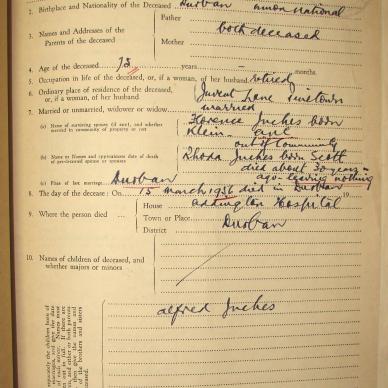 2. Birthplace and Nationality of the Deceased Durban union national
Father
3. Names and Addresses of the
Parents of the deceased
both deceased
Mother
4. Age of the deceased 75 years – months.
5. Occupation in life of the deceased, or, if a woman, of her husband retired
6. Ordinary place of residence of the deceased,
or, if a woman, of her husband
Juvent Lane Pinetown
7. Married or unmarried, widower or widow married
(a) Name of surviving spouse (if any), and whether
married in community of property or not
Florence Inches born
Klein and
out of community
(b) Name or Names and approximate date of death
of pre-deceased spouse or spouses
Rhoda Inches born Scott
died about 30 years
ago leaving nothing
(c) Place of last marriage Durban
8. The day of the decease: On 15 march 1956 died in Durban
9. Where the person died
House Addington Hospital 19
Town or Place Durban
District
10. Names of children of deceased, and
whether majors or minors
alfred Inches